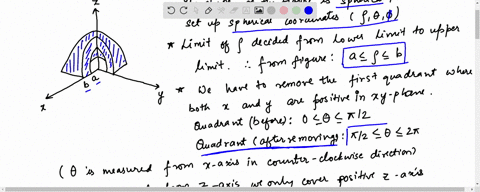 z
set up spherical coordinates (ρ,θ,φ)
* Limit of ρ decided from Lower Limit to upper
limit. ∴ from figure: a ≤ ρ ≤ b
* We have to remove the first quadrant where
both x and y are positive in xy-plane.
Quadrant (before): 0 ≤ θ ≤ π/2
Quadrant (after removing): π/2 ≤ θ ≤ 2π
(θ is measured from x-axis in counter-clockwise direction)
z-axis we only cover positive z-axis
x
b
a
y